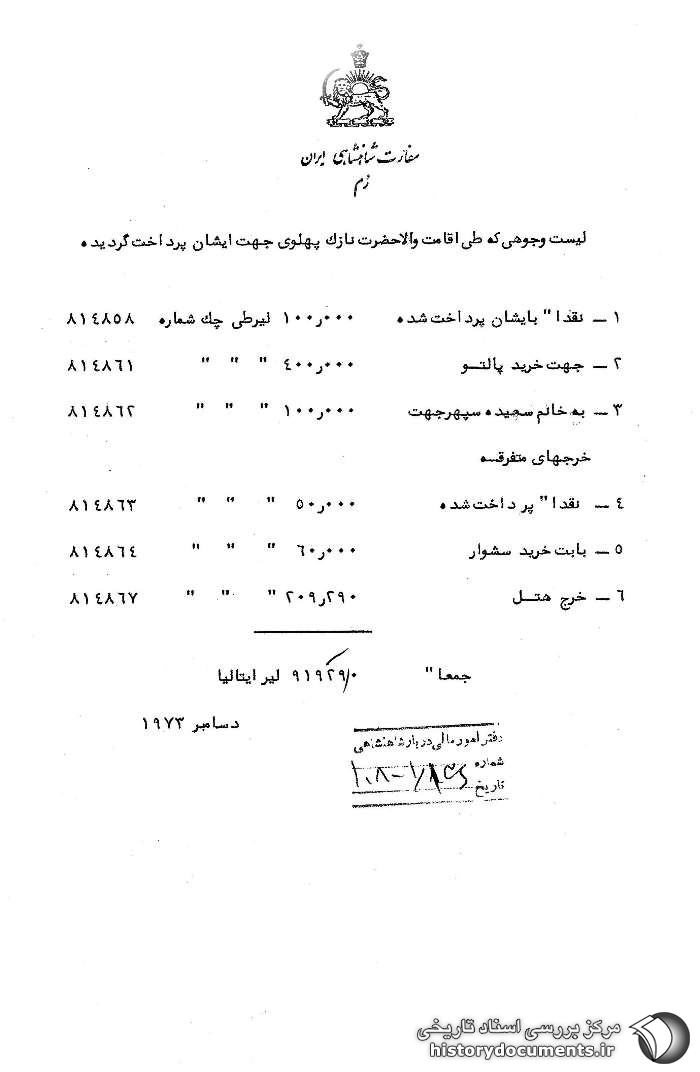 سفارت شاهنشاهی ایران
رم
لیست وجوهی که طی اقامت والاحضرت نازك پهلوی جهت ایشان پرداخت گردیده
۱ – نقدا" بایشان پرداخت شده ۱۰۰ر۰۰۰ لیر طی چك شماره ۸۱٤۸۵۸
۲ – جهت خرید پالتو ٤۰۰ر۰۰۰ " " " ۸۱٤۸٦۱
۳ – به خانم سعیده سپهر جهت ۱۰۰ر۰۰۰ " " " ۸۱٤۸٦۲
خرجهای متفرقه
٤ – نقدا" پرداخت شده ۵۰ر۰۰۰ " " " ۸۱٤۸٦۳
۵ – بابت خرید سشوار ٦۰ر۰۰۰ " " " ۸۱٤۸٦٤
٦ – خرج هتل ۲۰۹ر۲۹۰ " " " ۸۱٤۸٦۷
جمعا" ۹۱۹۲۹۰ لیر ایتالیا
دسامبر ۱۹۷۳
دفتر امور مالی دربار شاهنشاهی
شماره
تاریخ
مرکز بررسی اسناد تاریخی
historydocuments.ir